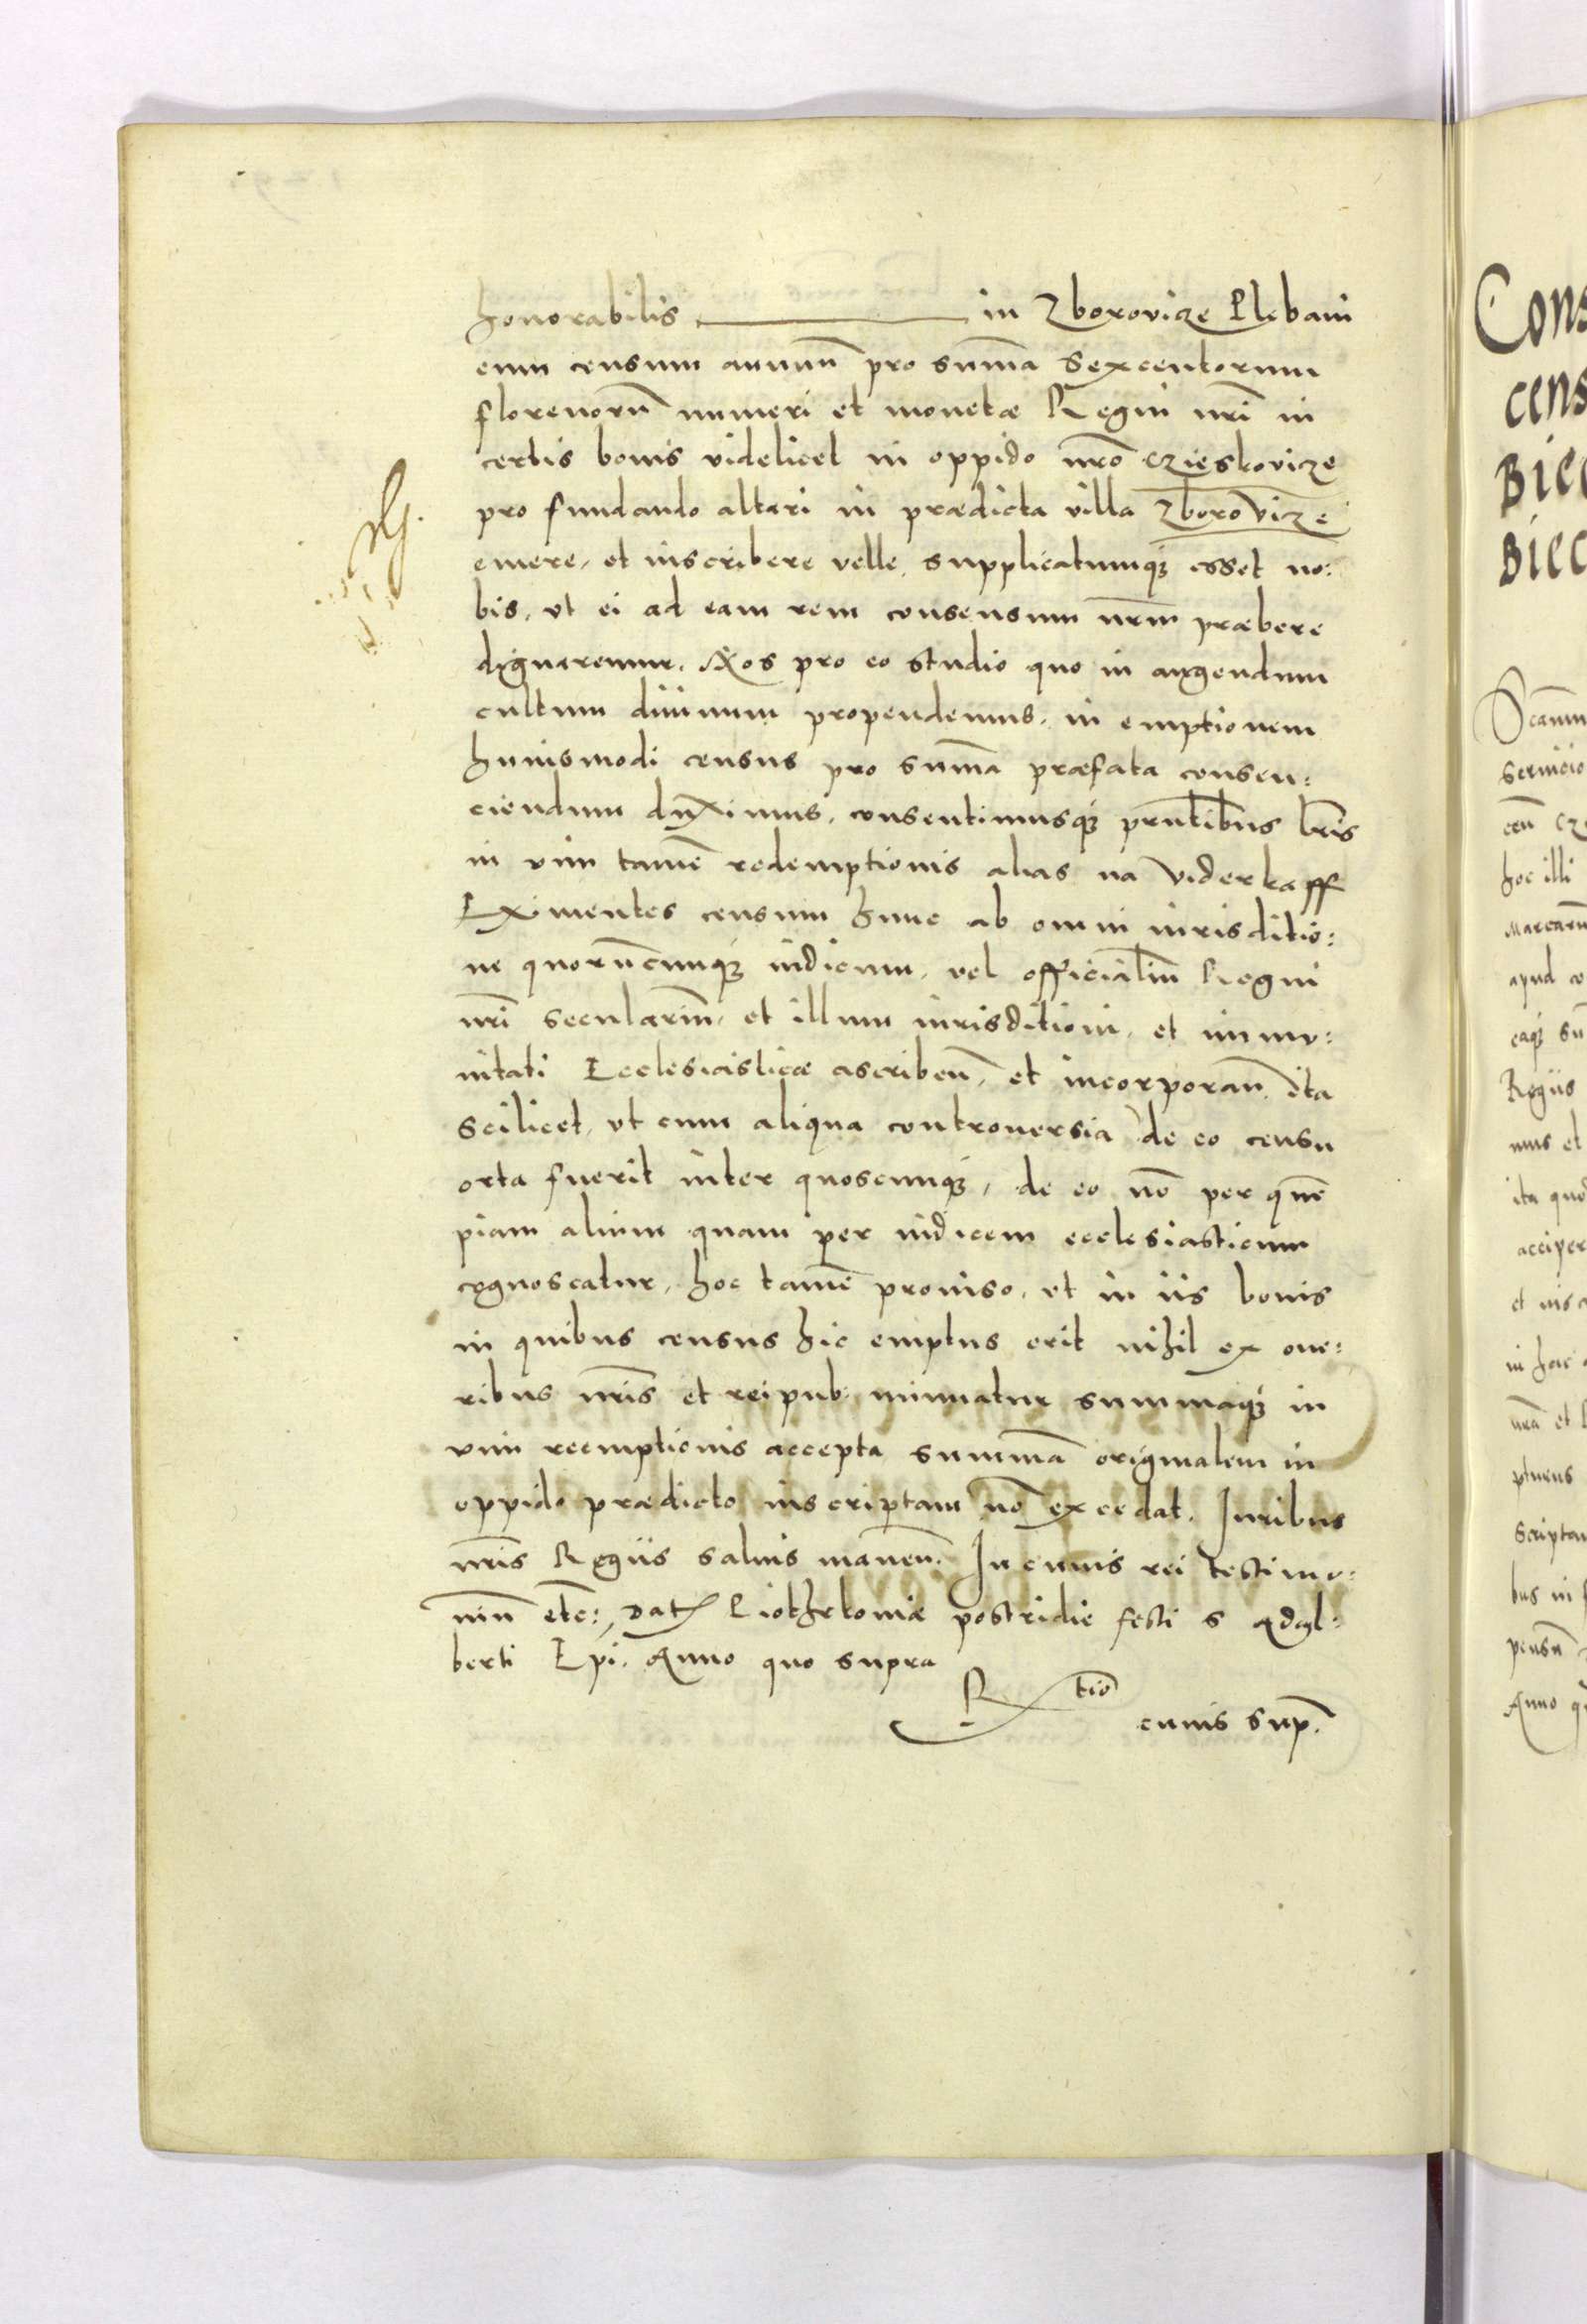 honorabilis ———— in Zborovicze Plebani
eum censum annuũ pro sum̃a sexcentorum
florenorũ numeri et monetæ Regni nr̃i in
certis bonis videlicet in oppido nr̃o Czieskovicze
pro fundando altari in prædicta villa Zborovicze
emere, et inscribere velle, supplicatumq3 esset no:
bis, vt ei ad eam rem consensum nr̃m præbere
dignaremur. Nos pro eo studio quo in augendum
cultum diuinum propendemus, in emptionem
huiusmodi census pro sum̃a præfata consen:
ciendum duximus, consentimusq3 prñtibus lr̃is
in vim tamẽ redemptionis alias na viderkaff
Eximentes censum hunc ab omni iurisditio:
ne quorũcunq3 iudicum, vel officialiũ Regni
nr̃i seculariũ, et illum iurisditioni, et immu:
nitati Ecclesiasticæ ascribeñ, et incorporañ, ita
scilicet, vt cum aliqua controuersia de eo censu
orta fuerit inter quoscunq3, de eo nõ per quẽ
piam alium quam per iudicem ecclesiasticum
cognoscatur, hoc tamẽ prouiso, vt in iis bonis
in quibus census hic emptus erit nihil ex one:
ribus nr̃is et reipub: minuatur summaq3 in
vim reemptionis accepta summã originalem in
oppido prædicto inscriptam nõ excedat. Iuribus
nr̃is Regiis saluis maneñ. In cuius rei testimo:
niũ etc: Dat Piothrkoviæ postridie festi S Adal:
berti Ep̃i. Anno quo supra
R tio
cuius sup.
Cons
cens
Biec
Biec
hoc illi
apud
Regiis
mus et
ita quod
acciper
in hac
bus in
Anno